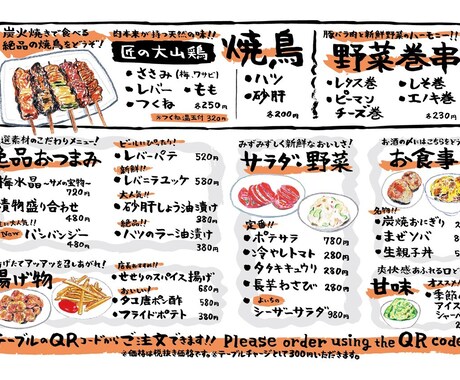 炭火焼きで食べる
絶品の焼鳥をどうぞ!
肉本来が持つ天然の味!!
匠の大山鶏
・ささみ(梅,ワサビ)
・レバー ・もも
・つくね 各250円
※つくね温玉付 320円
焼鳥
・ハツ
・砂肝
各200円
豚バラ肉と新鮮野菜のハーモニー!!
野菜巻串
・レタス巻 ・しそ巻
・ピーマン ・エノキ巻
チーズ巻 各230円
選素材のこだわりメニュー!
絶品おつまみ
梅水晶〜サメの宝物〜
720円
漬物盛り合わせ
480円
New バンバンジー
480円
ビールにぴったり!
・レバーパテ 520円
新鮮!!
・レバニラユッケ 580円
大人気!!
・砂肝しょう油漬け
380円
絶品!!
・ハツのラー油漬け
380円
みずみずしく新鮮なおいしさ!
サラダ・野菜
定番!!
・ポテサラ 780円
・冷やしトマト 280円
・タタキキュウリ 380円
・長芋わさび 280円
よいちの
・シーザーサラダ 980円
お酒の〆にはこちらをどう
お食事
名物!
・炭焼おにぎり
・まぜソバ
・生親子丼
揚げ物
げたてアッアツを召しあがれ!
店長おすすめ!!
・せせりのスパイス揚げ
680円
おいしい!
・タコ唐ポン酢 580円
・フライドポテト 380円
爽快感あふれる口ど
甘味
オススメ
・季節の
アイス
シャーベ
テーブルのQRコードからご注文できます!! Please order using the QR code
※価格は税抜き価格です。※テーブルチャージとして300円いただきます。